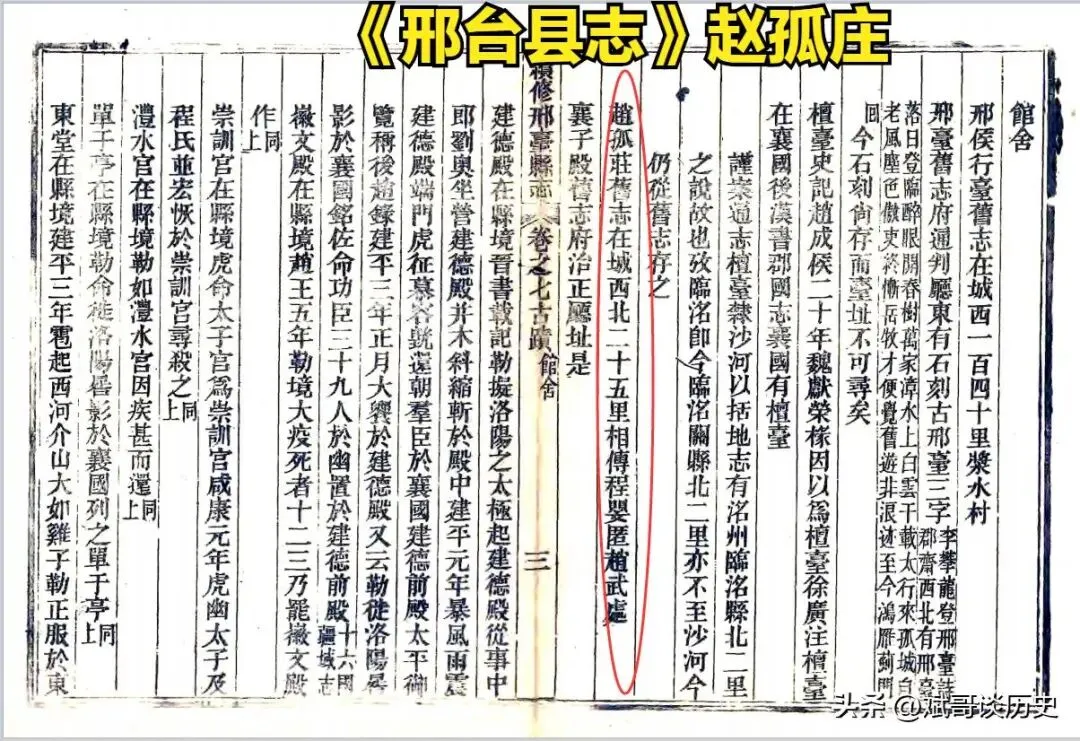 《邢台县志》赵孤庄
館舍
邢侯行臺舊志在城西一百四十里漿水村
邢臺舊志府通判廳東有石刻古邢臺三字李攀龍登邢臺詩郡齋西北有邢臺
落日登臨醉眼開春樹萬家漳水上白雲千載太行來孤城白
老風塵色傲吏終慚岳牧才便覺舊遊非浪迹至今鴻雁薊門
回今石刻尙存而臺址不可尋矣
檀臺史記趙成侯二十年魏獻榮椽因以爲檀臺徐廣注檀臺
在襄國後漢書郡國志襄國有檀臺
謹案通志檀臺隸沙河以括地志有洺州臨洺縣北二里
之說故也攷臨洺卽今臨洺關縣北二里亦不至沙河今
仍從舊志存之
趙孤莊舊志在城西北二十五里相傳程嬰匿趙武處
襄子殿舊志府治正廳址是
續修邢臺縣志 卷之七古蹟 館舍 三
建德殿在縣境晉書載記勒擬洛陽之太極起建德殿從事中
郎劉奥坐營建德殿井木斜縮斬於殿中建平元年暴風雨震
建德殿端門虎征慕容皝還朝羣臣於襄國建德前殿太平御
覽稱後趙錄建平三年正月大饗於建德殿又云勒徙洛陽晷
影於襄國銘佐命功臣三十九人於函置於建德前殿十六國疆域志
徽文殿在縣境趙王五年勒境大疫死者十二三乃罷徽文殿
作同上
崇訓宮在縣境虎命太子宮爲崇訓宮咸康元年虎幽太子及
程氏並宏恢於崇訓宮尋殺之同上
澧水宮在縣境勒如澧水宮因疾甚而還同上
單于亭在縣境勒命徙洛陽晷影於襄國列之單于亭同上
東堂在縣境建平三年雹起西河介山大如雞子勒正服於東
头条 @斌哥谈历史